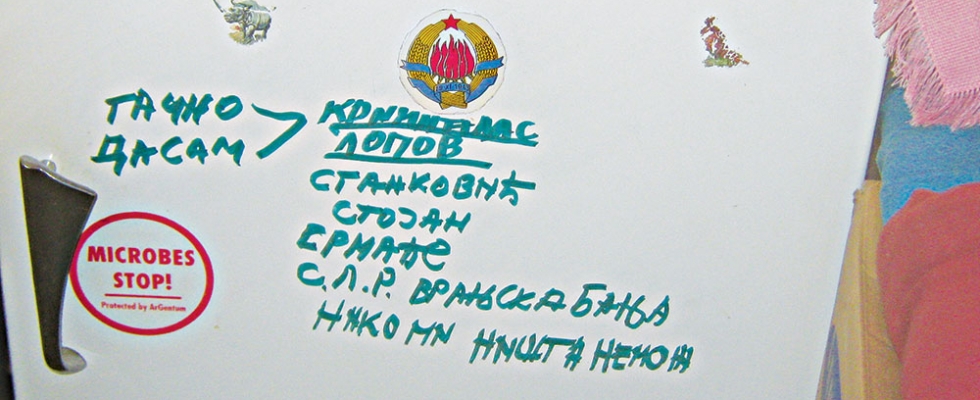 ТАЧНО
ДАСАМ
КРИМИНАЛАС
ЛОПОВ
СТАНКОВИЋ
СТОЈАН
С.Л.Р. ВРАЊСКА БАЊА
НИКО МИ НИШТА НЕМОЖ
MICROBES
STOP!
Protected by ArGentum